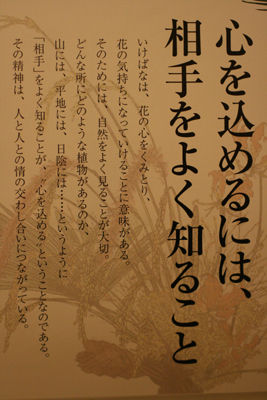 心を込めるには、
相手をよく知ること
いけばなは、花の心をくみとり、
花の気持ちになっていけることに意味がある。
そのためには、自然をよく見ることが大切。
どんな所にどのような植物があるのか、
山には、平地には、日陰には……というように
「相手」をよく知ることが、“心を込める”ということなのである。
その精神は、人と人との情の交わし合いにつながっている。